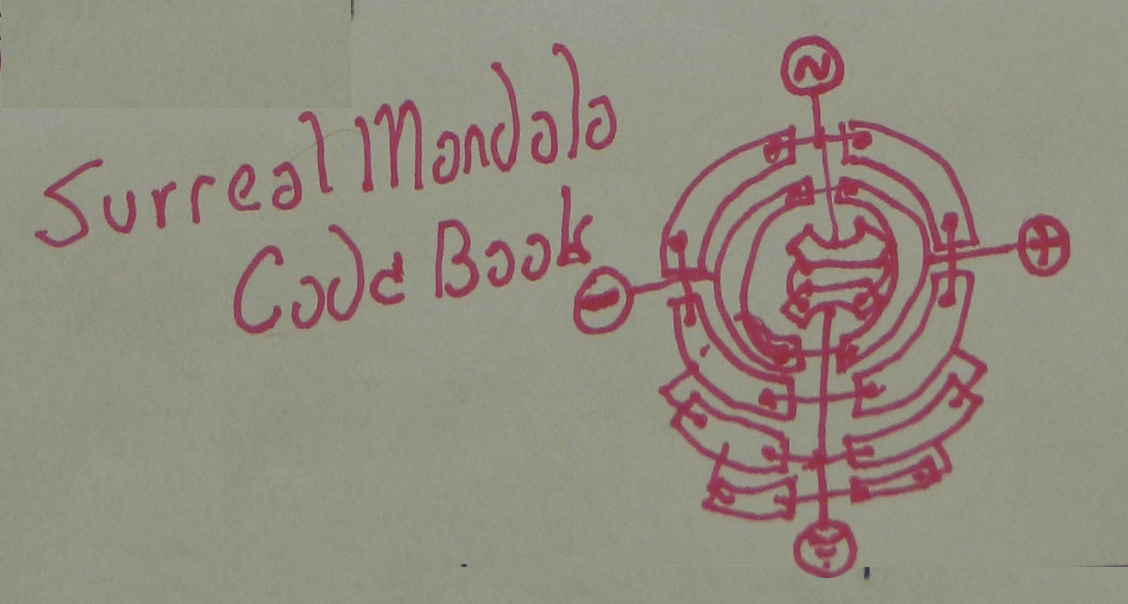 Surreal Mandala
Code Book